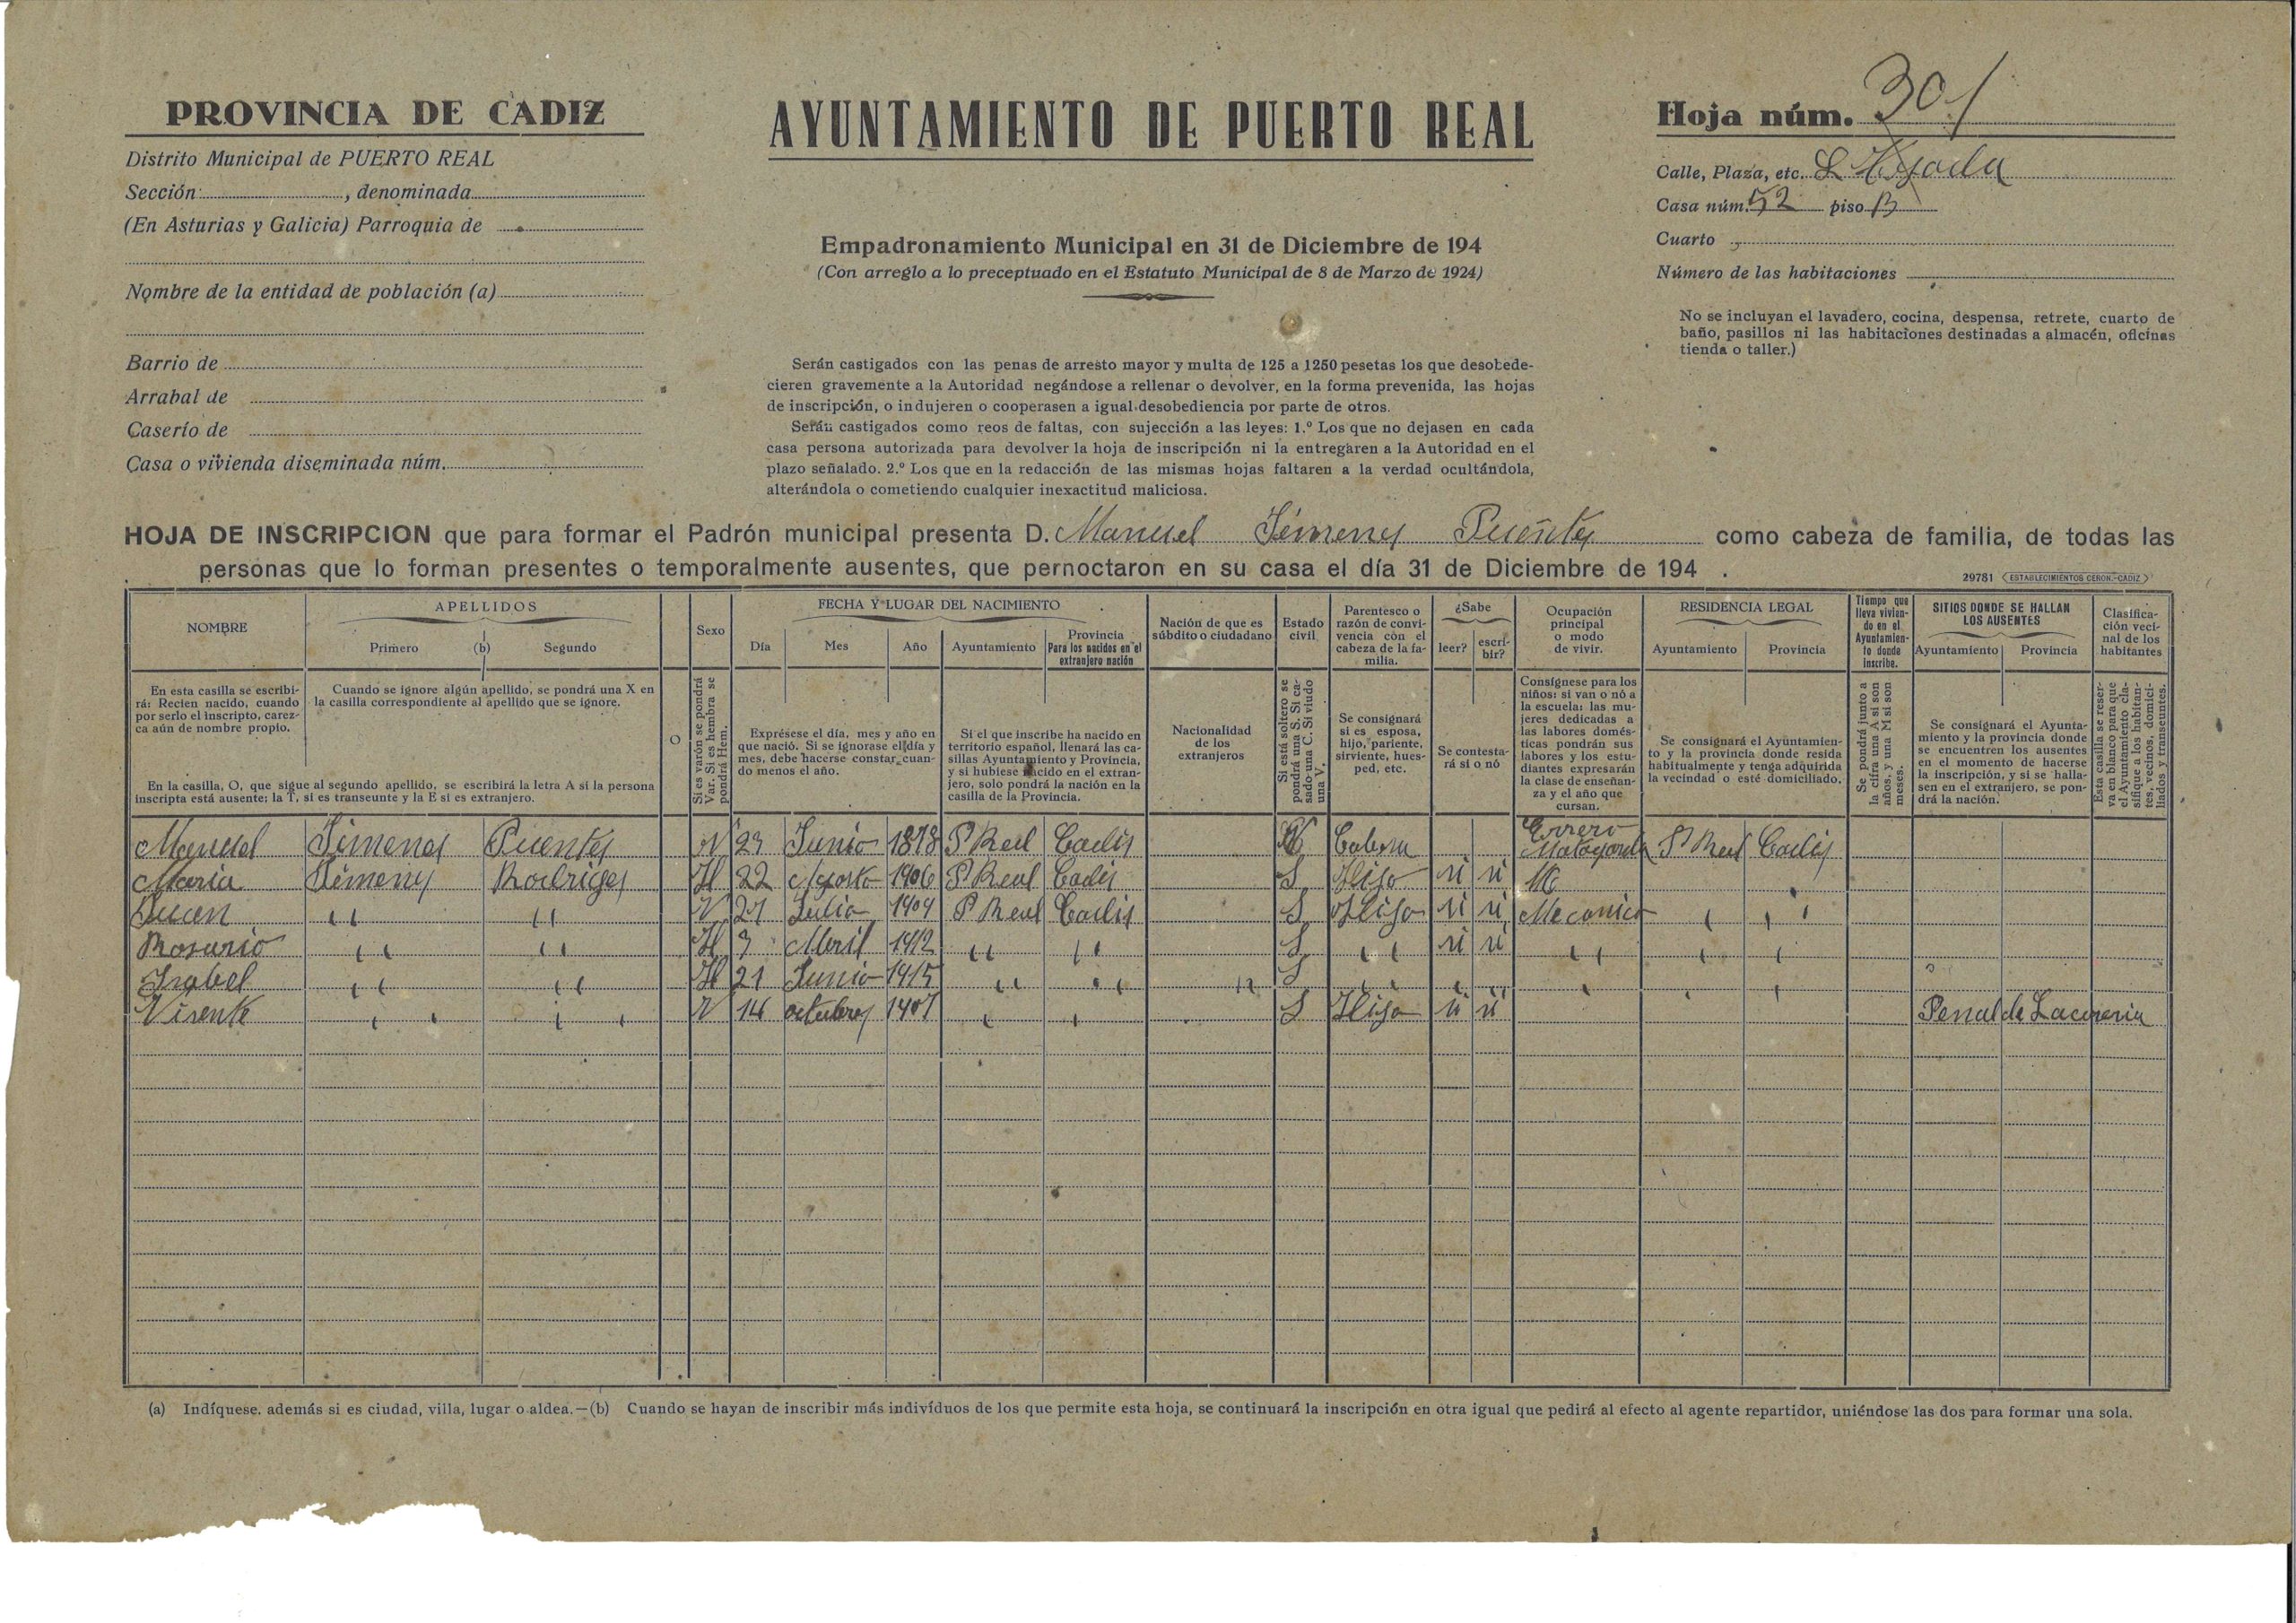 PROVINCIA DE CADIZ
Distrito Municipal de PUERTO REAL
Sección , denominada
(En Asturias y Galicia) Parroquia de
Nombre de la entidad de población (a)
Barrio de
Arrabal de
Caserío de
Casa o vivienda diseminada núm.
AYUNTAMIENTO DE PUERTO REAL
Empadronamiento Municipal en 31 de Diciembre de 194
(Con arreglo a lo preceptuado en el Estatuto Municipal de 8 de Marzo de 1924)
Serán castigados con las penas de arresto mayor y multa de 125 a 1250 pesetas los que desobede-
cieren gravemente a la Autoridad negándose a rellenar o devolver, en la forma prevenida, las hojas
de inscripción, o indujeren o cooperasen a igual desobediencia por parte de otros.
Serán castigados como reos de faltas, con sujección a las leyes: 1.º Los que no dejasen en cada
casa persona autorizada para devolver la hoja de inscripción ni la entregaren a la Autoridad en el
plazo señalado. 2.º Los que en la redacción de las mismas hojas faltaren a la verdad ocultándola,
alterándola o cometiendo cualquier inexactitud maliciosa.
Hoja núm. 301
Calle, Plaza, etc.
Casa núm. 52 piso B
Cuarto
Número de las habitaciones
No se incluyan el lavadero, cocina, despensa, retrete, cuarto de
baño, pasillos ni las habitaciones destinadas a almacén, oficinas
tienda o taller.)
HOJA DE INSCRIPCION que para formar el Padrón municipal presenta D. Manuel Jimenes Puentes como cabeza de familia, de todas las
personas que lo forman presentes o temporalmente ausentes, que pernoctaron en su casa el día 31 de Diciembre de 194 .
29781 (ESTABLECIMIENTOS CERON.-CADIZ)
NOMBRE
APELLIDOS
Primero (b) Segundo
Sexo
FECHA Y LUGAR DEL NACIMIENTO
Día Mes Año Ayuntamiento
Provincia
Para los nacidos en el
extranjero nación
Nación de que es
súbdito o ciudadano
Estado
civil
Parentesco o
razón de convi-
vencia con el
cabeza de la fa-
milia.
¿Sabe
leer? escri-
bir?
Ocupación
principal
o modo
de vivir.
RESIDENCIA LEGAL
Ayuntamiento Provincia
Tiempo que
lleva vivien-
do en el
Ayuntamien-
to donde
inscribe.
SITIOS DONDE SE HALLAN
LOS AUSENTES
Ayuntamiento Provincia
Clasifica-
ción veci-
nal de los
habitantes
En esta casilla se escribi-
rá: Recien nacido, cuando
por serlo el inscripto, carez-
ca aún de nombre propio.
Cuando se ignore algún apellido, se pondrá una X en
la casilla correspondiente al apellido que se ignore.
En la casilla, O, que sigue al segundo apellido, se escribirá la letra A si la persona
inscripta está ausente; la T, si es transeunte y la E si es extranjero.
O
Si es varón se pondrá
Var. Si es hembra se
pondrá Hem.
Exprésese el día, mes y año en
que nació. Si se ignorase el día y
mes, debe hacerse constar cuan-
do menos el año.
Si el que inscribe ha nacido en
territorio español, llenará las ca-
sillas Ayuntamiento y Provincia,
y si hubiese nacido en el extran-
jero, solo pondrá la nación en la
casilla de la Provincia.
Nacionalidad
de los
extranjeros
Si está soltero se
pondrá una S. Si ca-
sado una C. Si viudo
una V.
Se consignará
si es esposa,
hijo, pariente,
sirviente, hues-
ped, etc.
Se contesta-
rá si o nó
Consígnese para los
niños: si van o nó a
la escuela: las mu-
jeres dedicadas a
las labores domés-
ticas pondrán sus
labores y los estu-
diantes expresarán
la clase de enseñan-
za y el año que
cursan.
Se consignará el Ayuntamien-
to y la provincia donde resida
habitualmente y tenga adquirida
la vecindad o esté domiciliado.
Se pondrá junto a
la cifra una A si son
años, y una M si son
meses.
Se consignará el Ayunta-
miento y la provincia donde
se encuentren los ausentes
en el momento de hacerse
la inscripción, y si se halla-
sen en el extranjero, se pon-
drá la nación.
Esta casilla se reser-
va en blanco para que
el Ayuntamiento cla-
sifique a los habitan-
tes, vecinos, domici-
liados y transeuntes.
Manuel Jimenes Puentes V 23 Junio 1878 P. Real Cadis Cabesa Errero Matagorda P Real Cadis
Maria Jimenes Rodriges H 22 Agosto 1906 P Real Cadis S Hijo si si
Juan " " V 27 Julio 1909 P Real Cadis S Hijo si si Mecanico " "
Rosario " " H 9 Abril 1912 " " S " si si " " "
Isabel " " H 21 Junio 1915 " " " S " " " " " "
Visente " " V 14 octubres 1907 " " S Hijo si si Penal de
(a) Indíquese. además si es ciudad, villa, lugar o aldea.—(b) Cuando se hayan de inscribir más indivíduos de los que permite esta hoja, se continuará la inscripción en otra igual que pedirá al efecto al agente repartidor, uniéndose las dos para formar una sola.